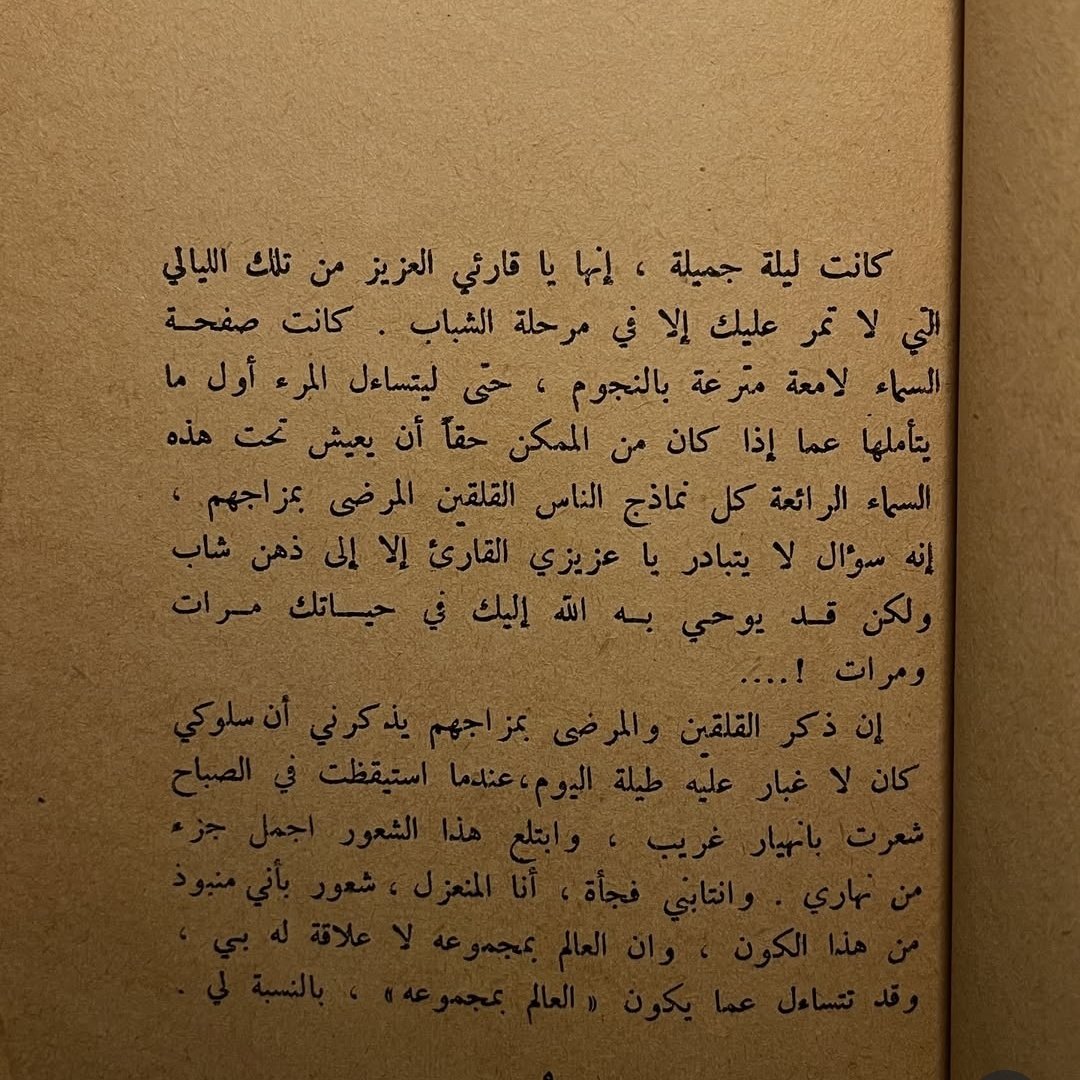 كانت ليلة جميلة ، إنها يا قارئي العزيز من تلك الليالي
التي لا تمر عليك إلا في مرحلة الشباب . كانت صفحـة
السماء لامعة مترعة بالنجوم ، حتى ليتساءل المرء أول ما
يتأملها عما إذا كان من الممكن حقاً أن يعيش تحت هذه
السماء الرائعة كل نماذج الناس القلقين المرضى بمزاجهم ،
إنه سؤال لا يتبادر يا عزيزي القارئ إلا إلى ذهن شاب
ولكن قـد يوحـي بـه الله إليك في حيـاتك مـرات
ومرات !....
إن ذكر القلقين والمرضى بمزاجهم يذكرني أن سلوكي
كان لا غبار عليه طيلة اليوم،عندما استيقظت في الصباح
شعرت بانهيار غريب ، وابتلع هذا الشعور اجمل جزء
من نهاري . وانتابني فجأة ، أنا المنعزل ، شعور بأني منبوذ
من هذا الكون ، وان العالم بمجموعه لا علاقة له بي ،
وقد تتساءل عما يكون « العالم بمجموعه» ، بالنسبة لي .